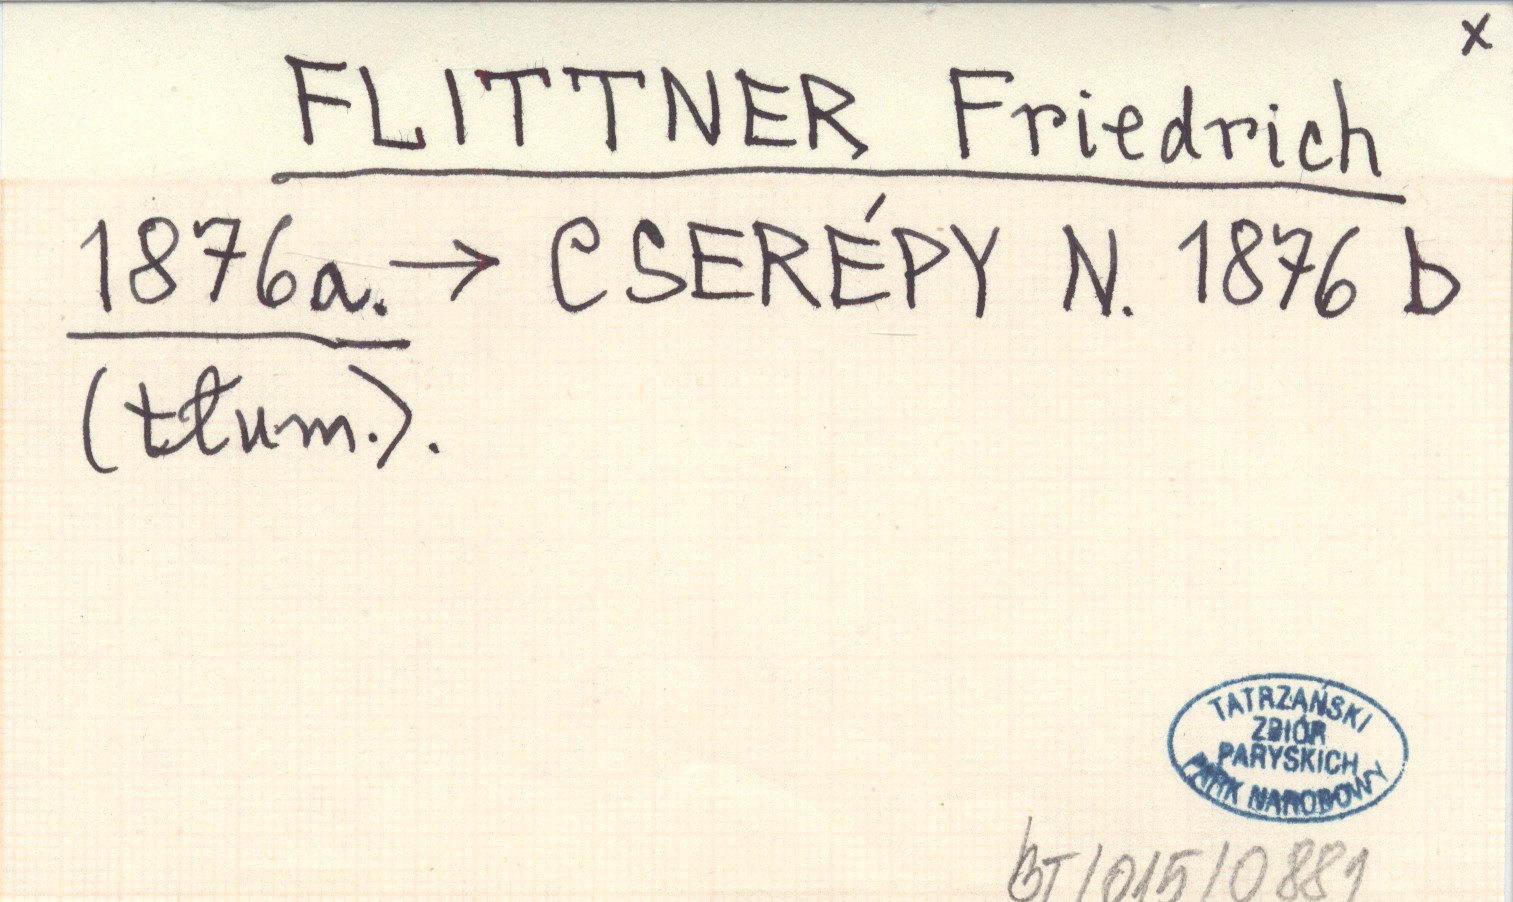 x
FLITTNER Friedrich
1876a. → CSERÉPY N. 1876 b
(tłum.).
TATRZAŃSKI
ZBIÓR
PARYSKICH
PARK NARODOWY
BT/015/0881